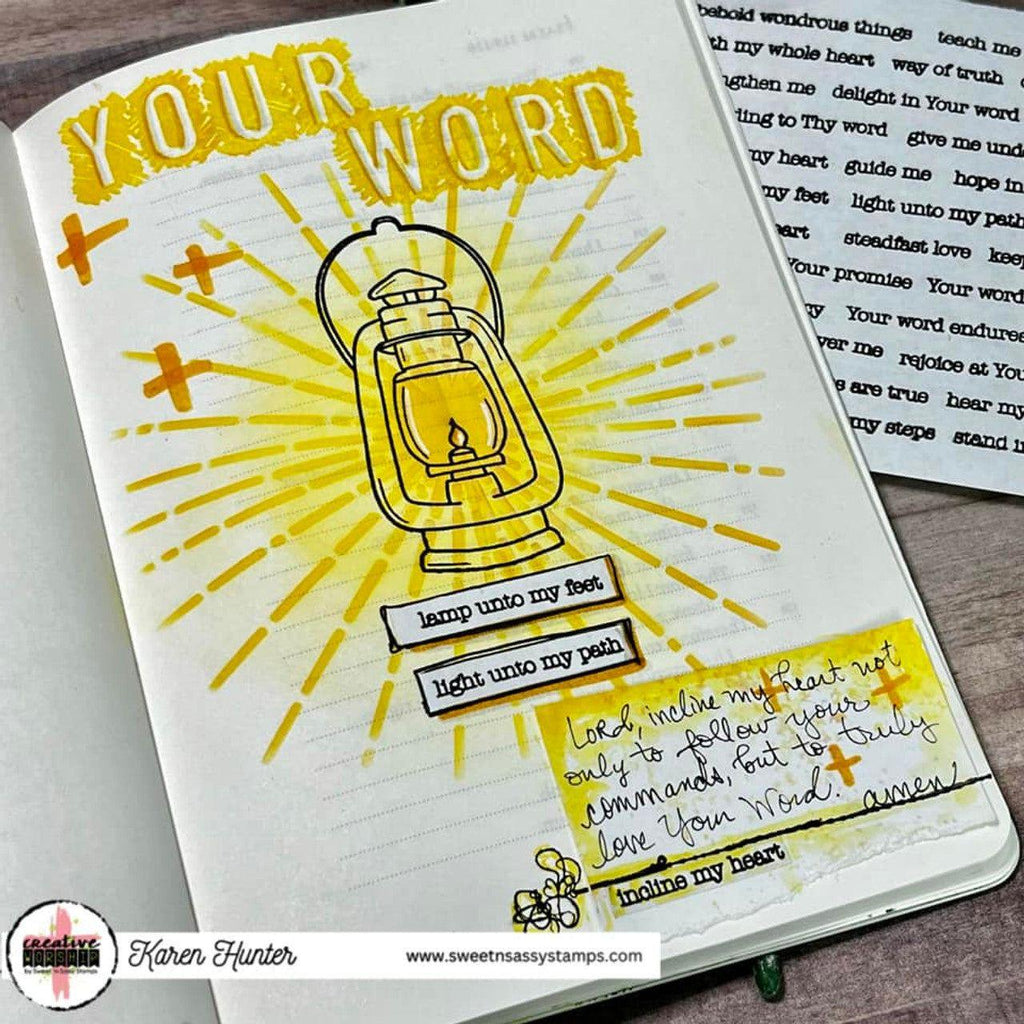 YOUR
WORD
lamp unto my feet
light unto my path
LORD, incline my heart not
only to follow your
commands, but to truly
love Your Word. amen
incline my heart
behold wondrous things teach me
my whole heart way of truth
me delight in Your word
to Thy word give me
my heart guide me hope in
my feet light unto my path
steadfast love
Your promise Your word
Your word endures
me rejoice at
are true hear my
my steps stand
creative
WORSHIP
by Sweet 'n Sassy Stamps
Karen Hunter
www.sweetnsassystamps.com